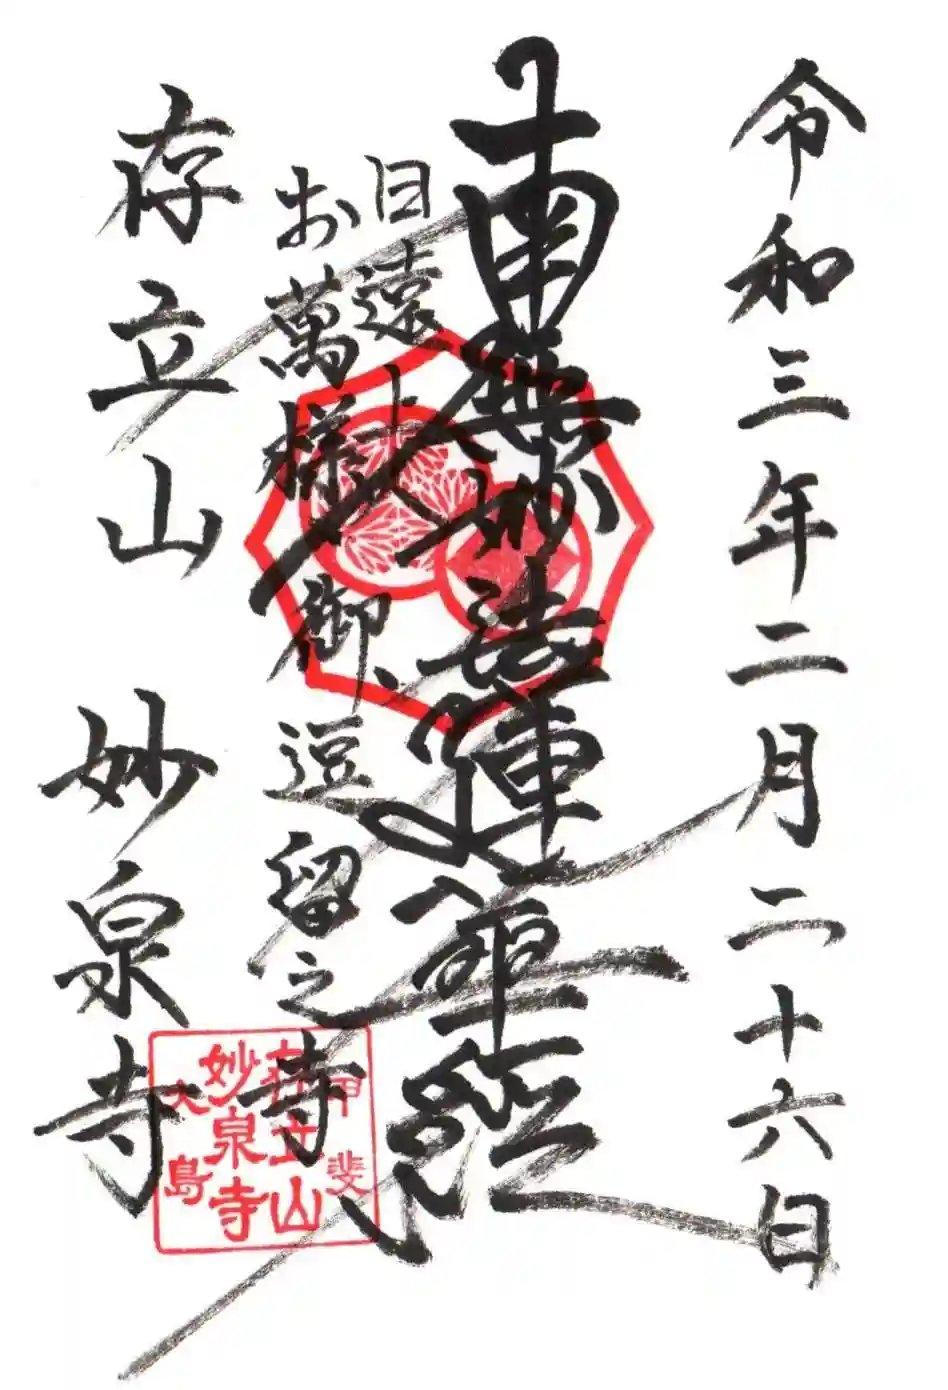 令和三年二月二十六日
南無妙法蓮華経
日遠大
お萬様御逗留之寺
存立山 妙泉寺
甲斐
存立山
妙泉寺
大島